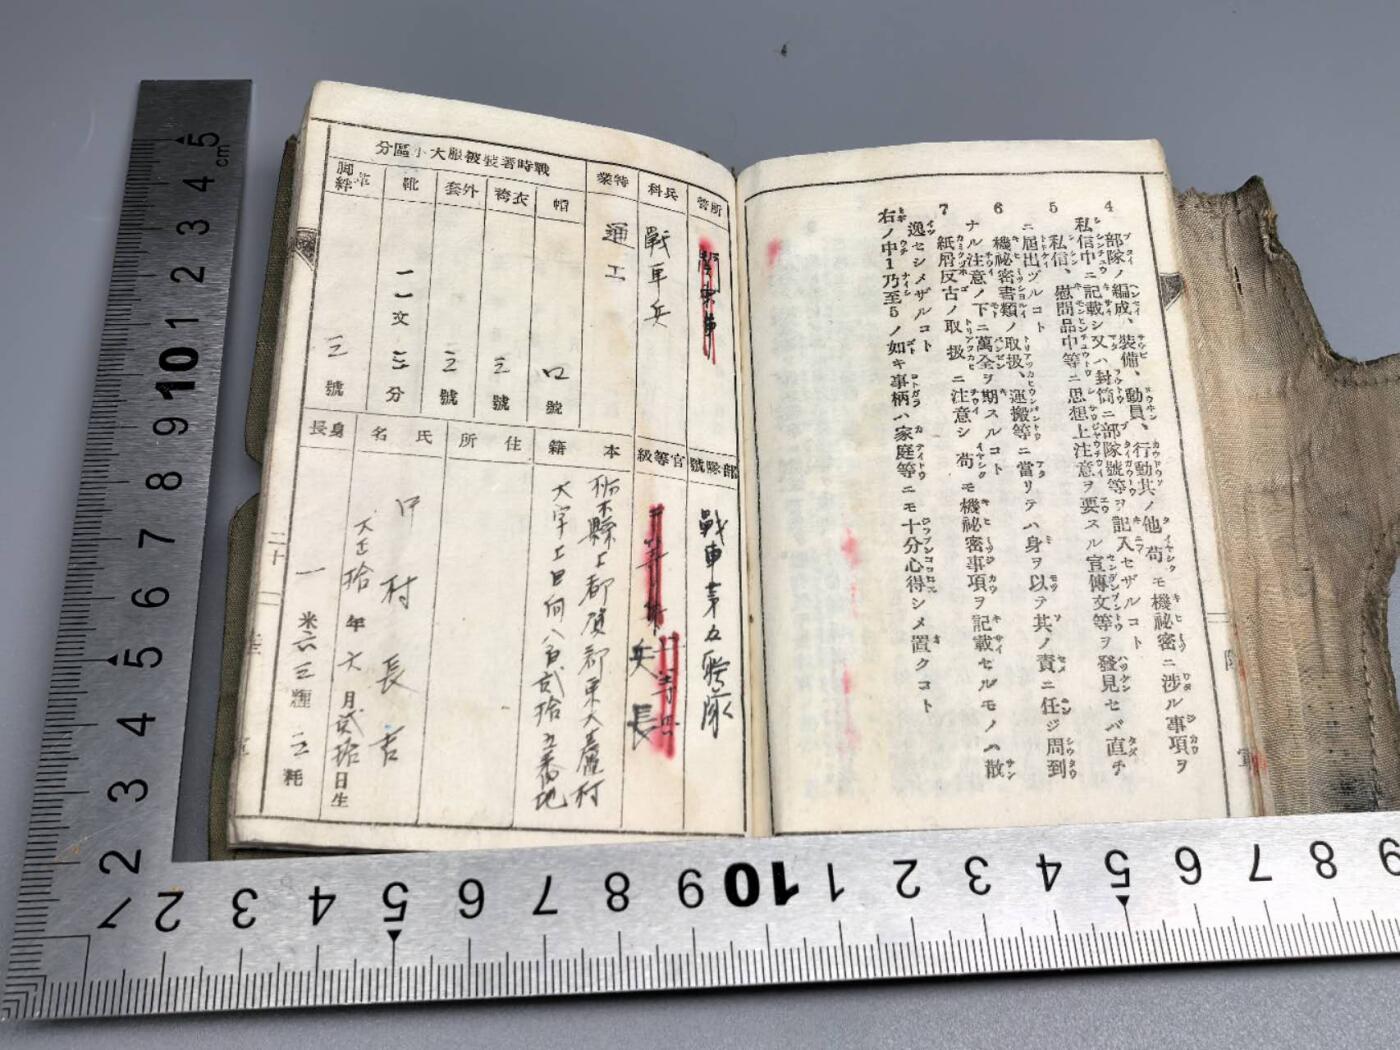 4 部隊ノ編成、裝備、動員、行動其ノ他苟モ機祕密ニ涉ル事項ヲ
私信中ニ記載シ又ハ封筒ニ部隊號等ヲ記入セザルコト
5 私信、慰問品中等ニ思想上注意ヲ要スル宣傳文等ヲ發見セバ直チ
ニ屆出ヅルコト
6 機祕密書類ノ取扱、運搬等ニ當リテハ身ヲ以テ其ノ責ニ任ジ周到
ナル注意ノ下ニ萬全ヲ期スルコト
7 紙屑反古ノ取扱ニ注意シ苟モ機祕密事項ヲ記載セルモノハ散
逸セシメザルコト
右ノ中1乃至5ノ如キ事柄ハ家庭等ニモ十分心得シメ置クコト
所管
兵科
戰車兵
特業
通工
戰時著裝被服大小區分
帽
號
衣袴
三號
外套
三號
靴
一一文三分
脚絆
三號
部隊號
戰車第五聯隊
官等級
上等兵
兵長
本籍
栃木縣上都賀郡東大蘆村
大字上日向八百貳拾五番地
住所
氏名
中村長吉
大正拾年六月貳拾日生
身長
一米六三糎二粍
二十一
5 cm
4
3
2
1
10
9
8
7
6
5
4
3
2
1
2
3
4
5
6
7
8
9
10
1
2
3
4
5
6
7
8
9